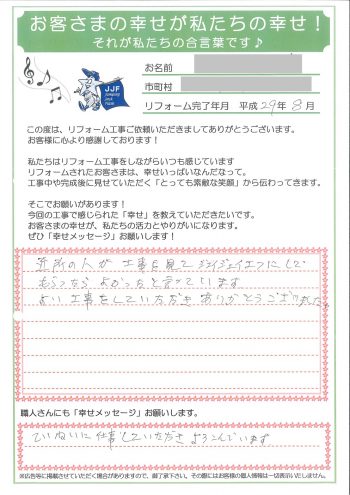 お客さまの幸せが私たちの幸せ！
それが私たちの合言葉です♪
お名前
市町村
JJF
リフォーム完了年月 平成 29年 8月
この度は、リフォーム工事ご依頼いただきましてありがとうございます。
お客様に心より感謝しております！
私たちはリフォーム工事をしながらいつも感じています
リフォームされたお客さまは、幸せいっぱいなんだなって。
工事中や完成後に見せていただく「とっても素敵な笑顔」から伝わってきます。
そこでお願いがあります！
今回の工事で感じられた「幸せ」を教えていただきたいです。
お客さまの幸せが、私たちの活力とやりがいになります。
ぜひ「幸せメッセージ」お願いします！
近所の人が工事を見てジェイジェイエフにして
もらったらよかったと言っています
よい工事をしていただきありがとうございました
職人さんにも「幸せメッセージ」お願いします。
ていねいに仕事していただきよろこんでいます
※広告等に掲載させていただく場合がありますので、御了承下さい。その際にはお客様の個人情報は一切表示いたしません。